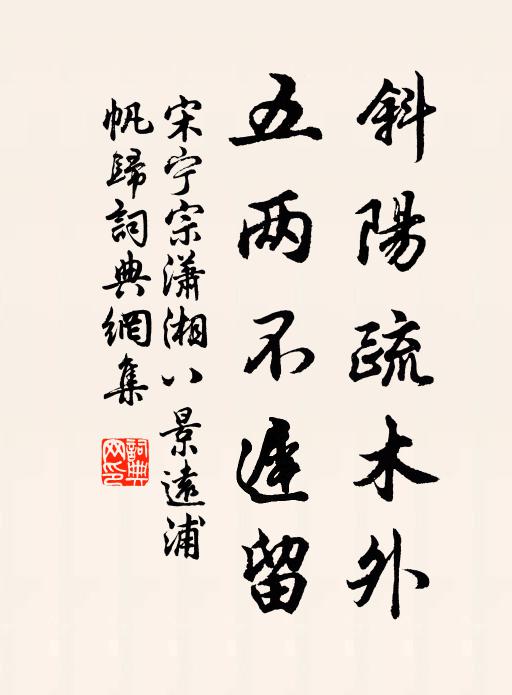 斜陽疏木外
五两不遲留
宋宁宗瀟湘八景遠浦
帆歸詞典網集
詞典网印